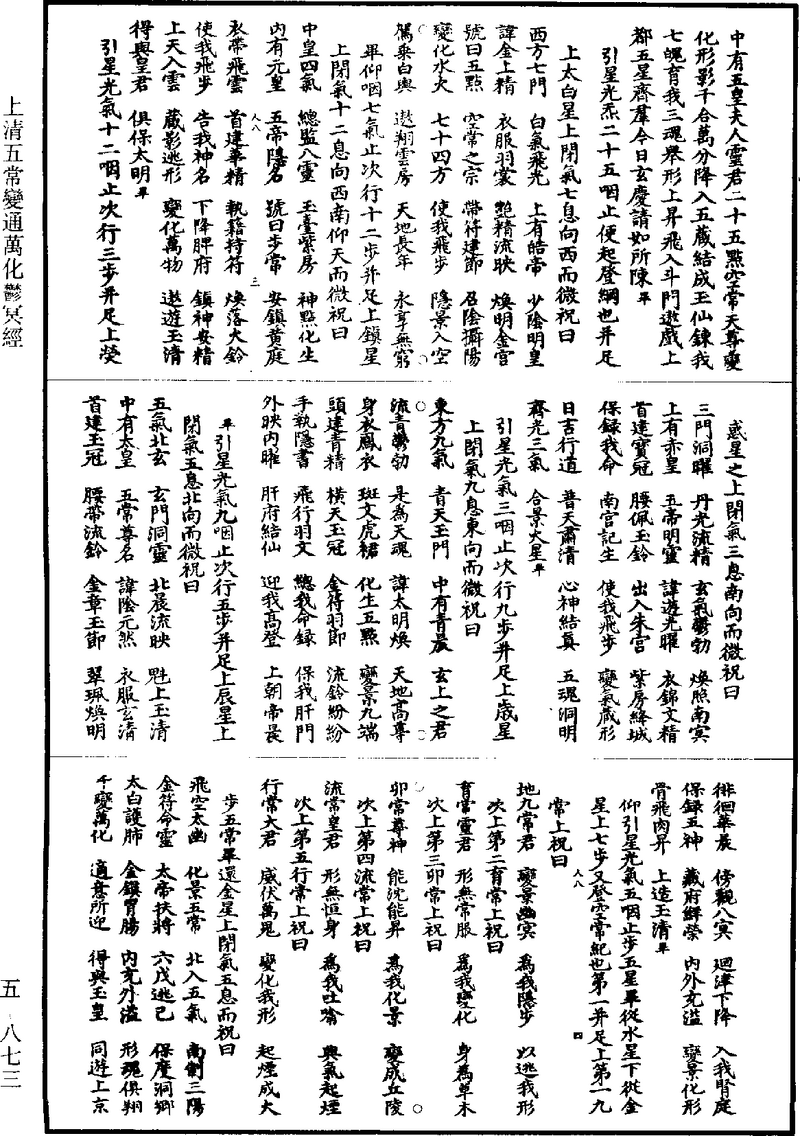 中有五皇夫人靈君二十五點空常天尊變
化形影千合萬分降入五藏結成玉仙錬我
七魄育我三魂舉形上昇飛入斗門遨戲上
都五星齊羣今日玄慶請如所陳畢
引星光炁二十五咽止便起登綱也并足
上太白星上閉氣七息向西而微祝曰
西方七門 白氣飛光 上有皓帝 少陰明皇
諱金上精 衣服羽裳 艷精流映 煥明金宮
號曰五點 空常之宗 帶符建節 召陰攝陽
變化水火 七十四方 使我飛步 隱景入空
駕乘白輿 遨翔雲房 天地長年 永享無窮
畢仰咽七氣止次行十二步并足上鎮星
上閉氣十二息向西南仰天而微祝曰
中皇四氣 總監八靈 玉臺紫房 神點化生
內有元皇 五帝隱名 號曰步常 安鎮黃庭
衣帶飛雲 首建華精 執籍持符 煥落大鈴
使我飛步 告我神名 下降脾府 鎮神安精
上天入雲 藏影逃形 變化萬物 遨遊玉清
得與皇君 俱保太明畢
引星光氣十二咽止次行三步并足上熒
惑星之上閉氣三息南向而微祝曰
三門洞曜 丹光流精 玄氣鬱勃 煥照南冥
上有赤皇 五帝明靈 諱遊光曜 衣錦文精
首建寶冠 腰佩玉鈴 出入朱宮 紫房絳城
保錄我命 南宮記生 使我飛步 變氣藏形
日吉行道 普天肅清 心神結真 五魂洞明
齊光三氣 合景火星畢
引星光氣三咽止次行九步并足上歲星
上閉氣九息東向而微祝曰
東方九氣 青天玉門 中有青晨 玄上之君
流青鬱勃 是為天魂 諱太明煥 天地高尊
身衣鳳衣 斑文虎裙 化生五點 變景九端
頭建青精 橫天玉冠 金符羽節 流鈴紛紛
手執隱書 飛行羽文 總我命錄 保我肝門
外映內曜 肝府結仙 迎我高登 上朝帝晨
畢引星光氣九咽止次行五步并足上辰星上
閉氣五息北向而微祝曰
五氣北玄 玄門洞靈 北晨流映 魁上玉清
中有太皇 五常尊名 諱陰元然 衣服玄清
首建玉冠 腰帶流鈴 金章玉節 翠珮煥明
徘徊華晨 傍觀八冥 迴津下降 入我腎庭
保錄五神 藏府鮮榮 內外充溢 變景化形
骨飛肉昇 上造玉清畢
仰引星光氣五咽止步五星畢從水星下從金
星上七步又登空常紀也第一并足上第一九
常上祝曰
地九常君 變景幽冥 為我隱步 以逃我形
次上第二育常上祝曰
育常靈君 形無常服 為我變化 身為草木
次上第三卯常上祝曰
卯常尊神 能沈能昇 為我化景 變成丘陵
次上第四流常上祝曰
流常皇君 形無恒身 為我吐喻 興氣起煙
次上第五行常上祝曰
行常大君 威伏萬鬼 變化我形 起煙成火
步五常畢還金星上閉氣五息而祝曰
飛空太幽 化景五常 北入五氣 南制三陽
金符命靈 太帝扶將 六戊逃己 保度洞鄉
太白護肺 金鎮胃腸 內充外溢 形魂俱翔
千變萬化 適意所迎 得與玉皇 同遊上京
上清五常變通萬化鬱冥經
五-八七三